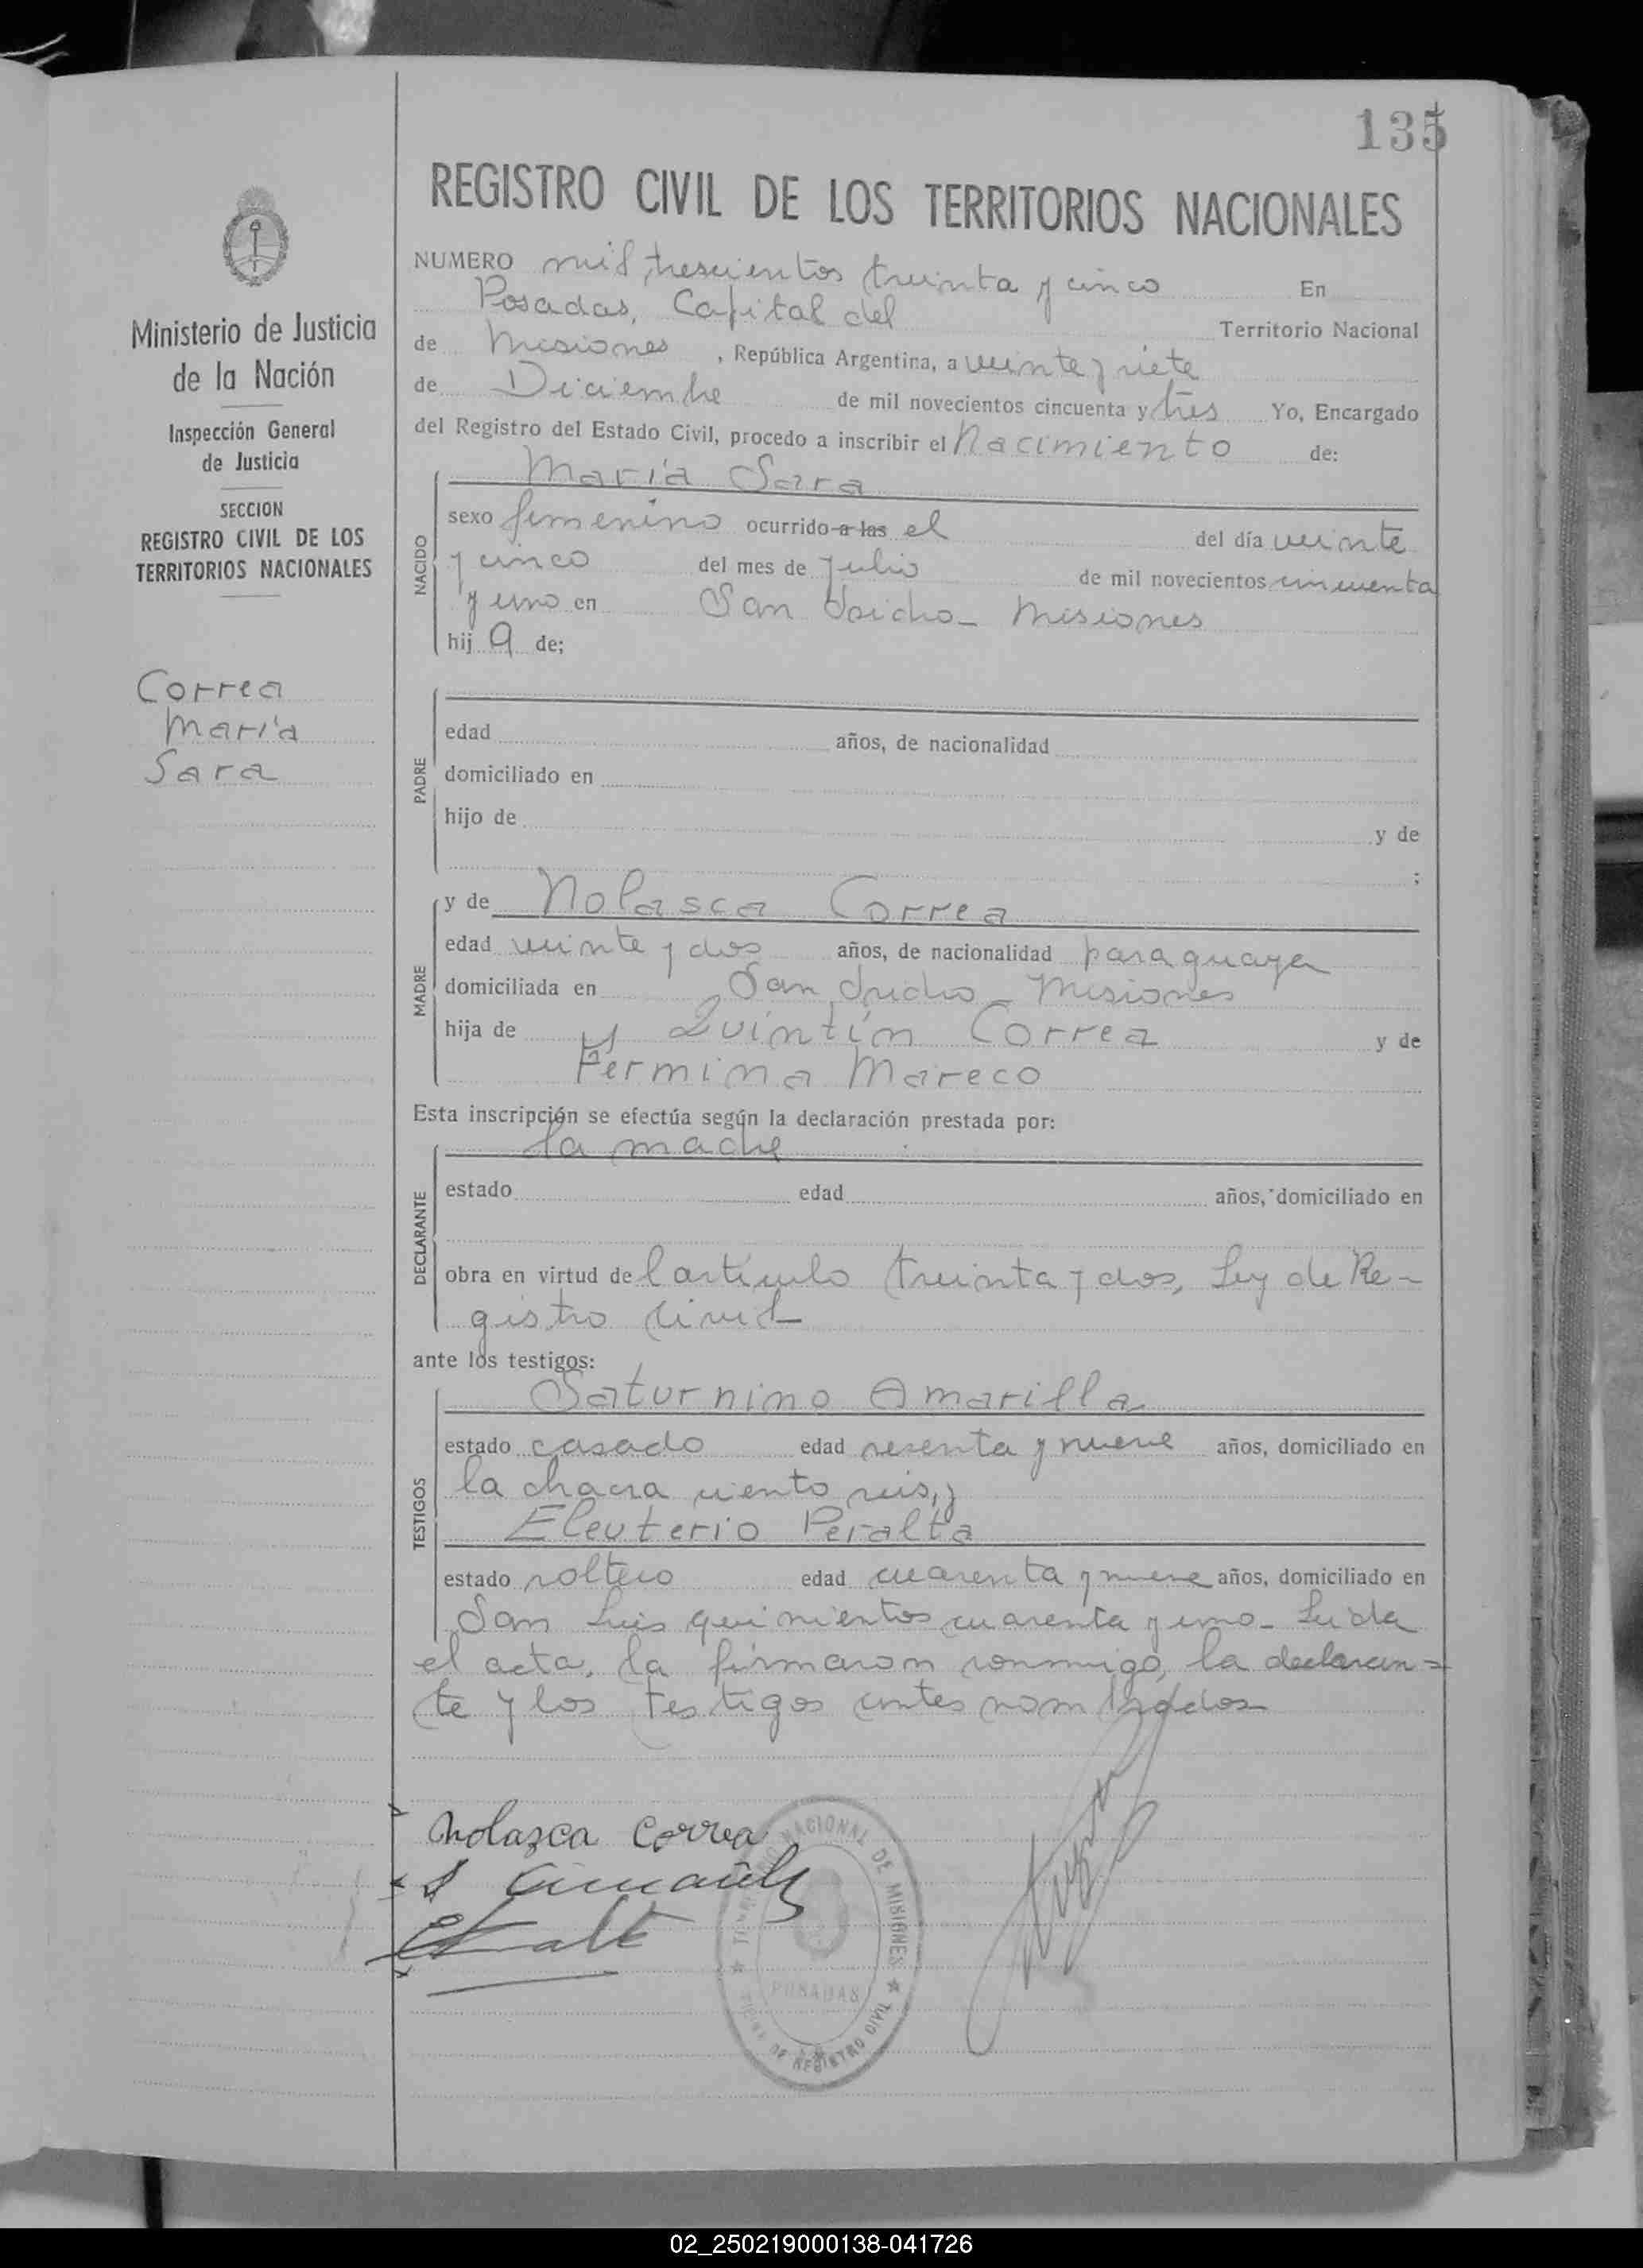 135
REGISTRO CIVIL DE LOS TERRITORIOS NACIONALES
Ministerio de Justicia
de la Nación
Inspección General
de Justicia
SECCION
REGISTRO CIVIL DE LOS
TERRITORIOS NACIONALES
Correa
María
Sara
NUMERO mil trescientos treinta y cinco En
Posadas, Capital del Territorio Nacional
de Misiones, República Argentina, a veinte y siete
de Diciembre de mil novecientos cincuenta y tres Yo, Encargado
del Registro del Estado Civil, procedo a inscribir el Nacimiento de:
NACIDO
María Sara
sexo femenino ocurrido a las el del día veinte
y cinco del mes de Julio de mil novecientos cincuenta
y uno en San Isidro - Misiones
hij a de;
PADRE
edad años, de nacionalidad
domiciliado en
hijo de y de
;
MADRE
y de Nolasca Correa
edad veinte y dos años, de nacionalidad paraguaya
domiciliada en San Isidro - Misiones
hija de Quintín Correa y de
Fermina Mareco
Esta inscripción se efectúa según la declaración prestada por:
DECLARANTE
la madre
estado edad años, domiciliado en
obra en virtud del artículo treinta y dos, Ley de Re-
gistro Civil
ante los testigos:
TESTIGOS
Saturnino Amarilla
estado casado edad sesenta y nueve años, domiciliado en
la chacra ciento seis, y
Eleuterio Peralta
estado soltero edad cuarenta y nueve años, domiciliado en
San Luis quinientos cuarenta y uno - Leída
el acta, la firmaron conmigo, la declaran=
te y los testigos antes nombrados
Nolazca Correa
NACIONAL DE MISIONES
POSADAS
DE REGISTRO CIVIL
02_250219000138-041726